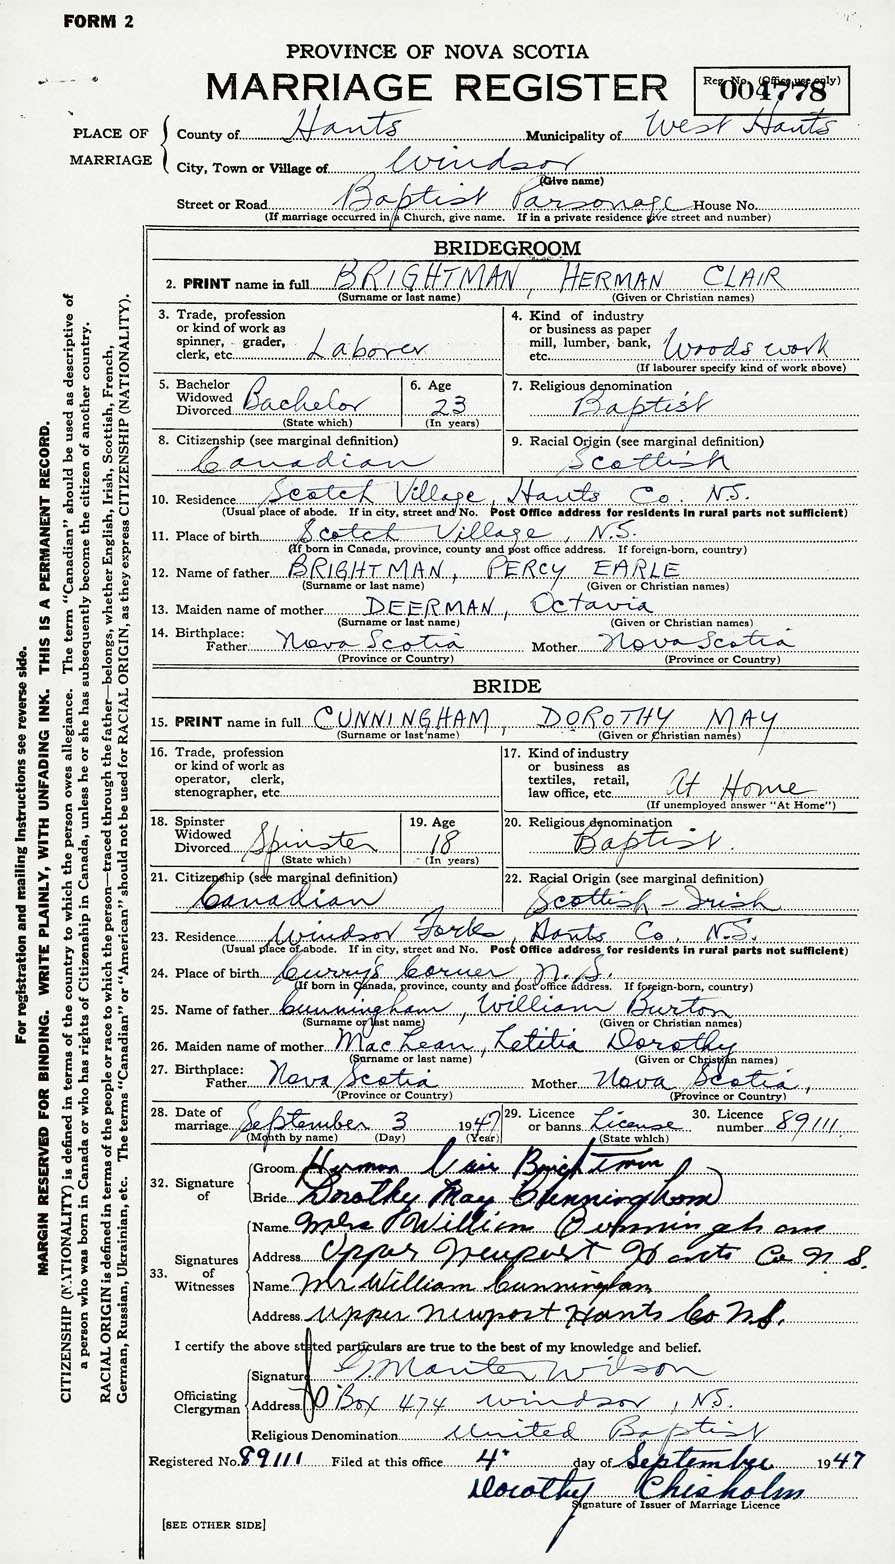 FORM 2
PROVINCE OF NOVA SCOTIA
MARRIAGE REGISTER
Reg. No. (Office use only)
004778
PLACE OF MARRIAGE
County of Hants Municipality of West Hants
City, Town or Village of Windsor
(Give name)
Street or Road Baptist Parsonage House No.
(If marriage occurred in a Church, give name. If in a private residence give street and number)
BRIDEGROOM
2. PRINT name in full BRIGHTMAN, HERMAN CLAIR
(Surname or last name) (Given or Christian names)
3. Trade, profession or kind of work as spinner, grader, clerk, etc. Laborer
4. Kind of industry or business as paper mill, lumber, bank, etc. Woods work
(If labourer specify kind of work above)
5. Bachelor Widowed Divorced Bachelor
(State which)
6. Age 23
(In years)
7. Religious denomination Baptist
8. Citizenship (see marginal definition) Canadian
9. Racial Origin (see marginal definition) Scottish
10. Residence Scotch Village, Hants Co. N.S.
(Usual place of abode. If in city, street and No. Post Office address for residents in rural parts not sufficient)
11. Place of birth Scotch Village, N.S.
(If born in Canada, province, county and post office address. If foreign-born, country)
12. Name of father BRIGHTMAN, PERCY EARLE
(Surname or last name) (Given or Christian names)
13. Maiden name of mother DEERMAN, Octavia
(Surname or last name) (Given or Christian names)
14. Birthplace: Father Nova Scotia Mother Nova Scotia
(Province or Country) (Province or Country)
BRIDE
15. PRINT name in full CUNNINGHAM, DOROTHY MAY
(Surname or last name) (Given or Christian names)
16. Trade, profession or kind of work as operator, clerk, stenographer, etc.
17. Kind of industry or business as textiles, retail, law office, etc. At Home
(If unemployed answer "At Home")
18. Spinster Widowed Divorced Spinster
(State which)
19. Age 18
(In years)
20. Religious denomination Baptist.
21. Citizenship (see marginal definition) Canadian
22. Racial Origin (see marginal definition) Scottish - Irish
23. Residence Windsor Forks, Hants Co. N.S.
(Usual place of abode. If in city, street and No. Post Office address for residents in rural parts not sufficient)
24. Place of birth Curry's Corner, N.S.
(If born in Canada, province, county and post office address. If foreign-born, country)
25. Name of father Cunningham, William Burton
(Surname or last name) (Given or Christian names)
26. Maiden name of mother MacLean, Letitia Dorothy
(Surname or last name) (Given or Christian names)
27. Birthplace: Father Nova Scotia Mother Nova Scotia,
(Province or Country) (Province or Country)
28. Date of marriage September 3 1947
(Month by name) (Day) (Year)
29. Licence or banns License
(State which)
30. Licence number 89111
32. Signature of
Groom Herman Clair Brightman
Bride Dorothy May Cunningham
33. Signatures of Witnesses
Name Mrs William Cunningham
Address Upper Newport Hants Co N.S.
Name Mr William Cunningham
Address Upper Newport Hants Co N.S.
I certify the above stated particulars are true to the best of my knowledge and belief.
Officiating Clergyman
Signature G. Manter Wilson
Address Box 474 Windsor, N.S.
Religious Denomination United Baptist
Registered No. 89111 Filed at this office 4" day of September 1947
Dorothy Chisholm
Signature of Issuer of Marriage Licence
[SEE OTHER SIDE]
For registration and mailing instructions see reverse side.
MARGIN RESERVED FOR BINDING. WRITE PLAINLY, WITH UNFADING INK. THIS IS A PERMANENT RECORD.
CITIZENSHIP (NATIONALITY) is defined in terms of the country to which the person owes allegiance. The term "Canadian" should be used as descriptive of
a person who was born in Canada or who has rights of Citizenship in Canada, unless he or she has subsequently become the citizen of another country.
RACIAL ORIGIN is defined in terms of the people or race to which the person—traced through the father—belongs, whether English, Irish, Scottish, French,
German, Russian, Ukrainian, etc. The terms "Canadian" or "American" should not be used for RACIAL ORIGIN, as they express CITIZENSHIP (NATIONALITY).